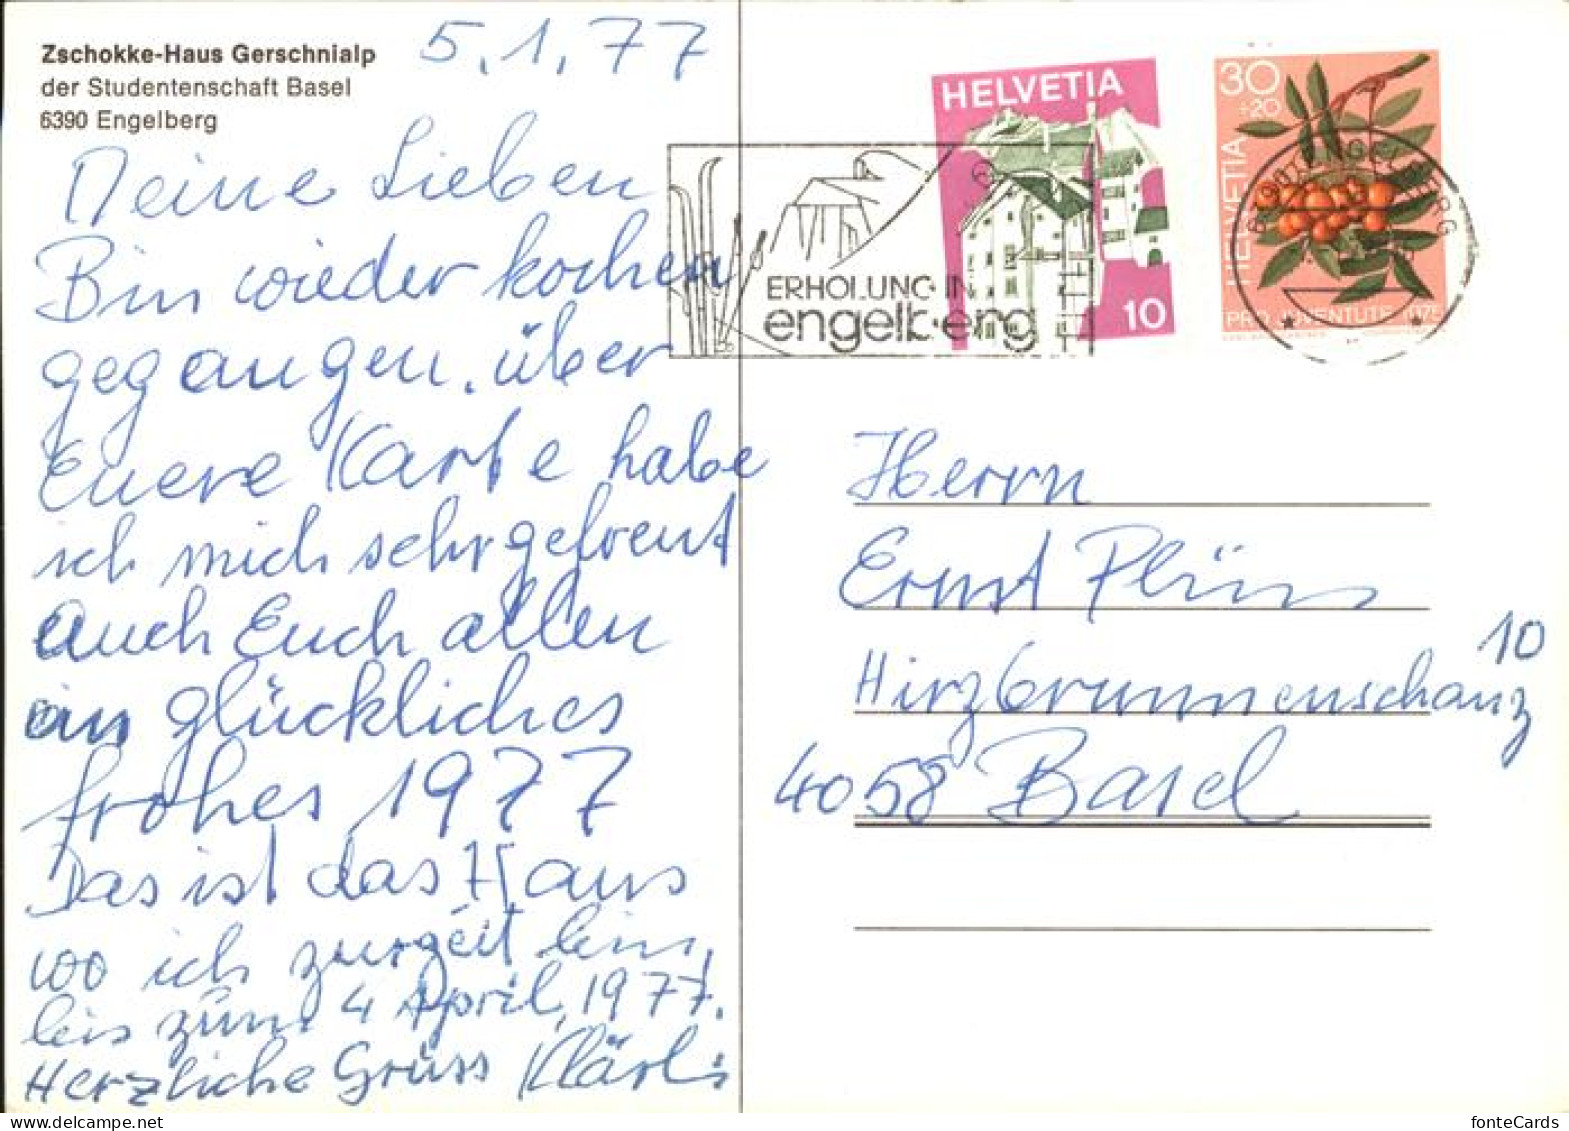 Zschokke-Haus Gerschnialp
der Studentenschaft Basel
6390 Engelberg
5.1.77
Meine Lieben
Bin wieder kochen
gegangen. über
Euere Karte habe
ich mich sehr gefreut
Auch Euch allen
ein glückliches
frohes 1977
Das ist das Haus
wo ich zurzeit bin,
bis zum 4 April, 1977.
Herzliche Grüss Klärli
HELVETIA
10
30
+20
HELVETIA
PRO JUVENTUTE 1975
ERHOLUNG IN
engelberg
ENGELBERG
Herrn
Ernst Plüss
Hirzbrunnenschanz 10
4058 Basel
fonteCards
www.delcampe.net